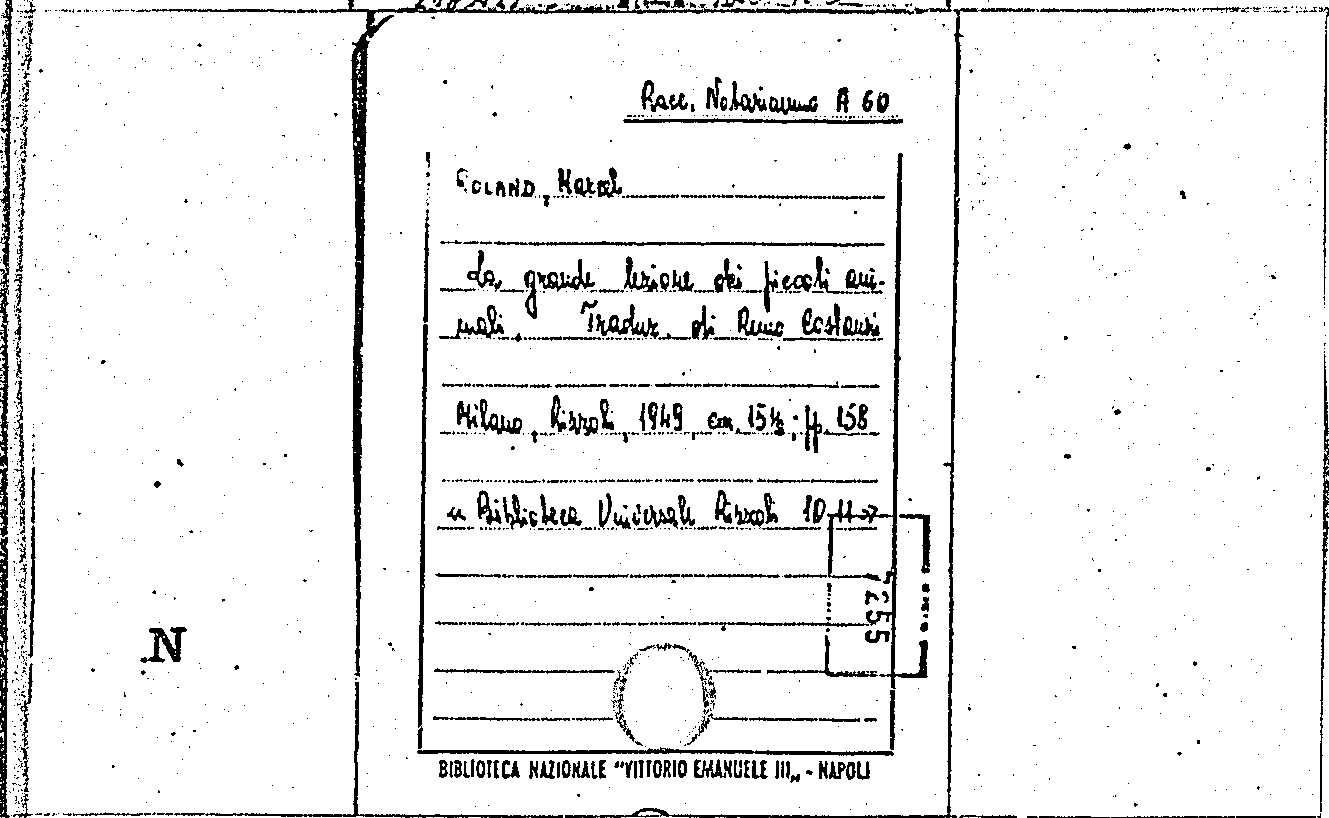 Racc. Notarianno A 60
ROLAND, Marcel
La grande lezione dei piccoli ani-
mali. Traduz. di Remo Costanzi
Milano, Rizzoli, 1949, cm. 15½, pp. 158
"Biblioteca Universale Rizzoli 10 11"
7255
N
BIBLIOTECA NAZIONALE "VITTORIO EMANUELE III„ - NAPOLI